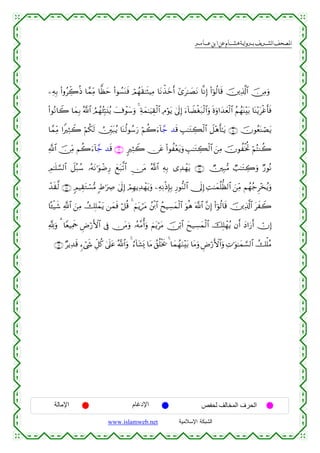 المصحف الشريف برواية هشام عن ابن عامر
وَمِنَ ٱلَّذِينَ قَالُوٓا۟ إِنَّا نَصَـٰرَىٰٓ أَخَذْنَا مِيثَـٰقَهُمْ فَنَسُوا۟ حَظًّا مِّمَّا ذُكِّرُوا۟ بِهِۦ
فَأَغْرَيْنَا بَيْنَهُمُ ٱلْعَدَاوَةَ وَٱلْبَغْضَآءَ إِلَىٰ يَوْمِ ٱلْقِيَـٰمَةِ ۚ وَسَوْفَ يُنَبِّئُهُمُ ٱللَّهُ بِمَا كَانُوا۟
يَصْنَعُونَ يَـٰٓأَهْلَ ٱلْكِتَـٰبِ قَد جَّآءَكُمْ رَسُولُنَا يُبَيِّنُ لَكُمْ كَثِيرًا مِّمَّا
كُنتُمْ تُخْفُونَ مِنَ ٱلْكِتَـٰبِ وَيَعْفُوا۟ عَن كَثِيرٍ ۚ قَد جَّآءَكُم مِّنَ ٱللَّهِ
نُورٌ وَكِتَـٰبٌ مُّبِينٌ يَهْدِى بِهِ ٱللَّهُ مَنِ ٱتَّبَعَ رِضْوَٰنَهُۥ سُبُلَ ٱلسَّلَـٰمِ
وَيُخْرِجُهُم مِّنَ ٱلظُّلُمَـٰتِ إِلَى ٱلنُّورِ بِإِذْنِهِۦ وَيَهْدِيهِمْ إِلَىٰ صِرَٰطٍ مُّسْتَقِيمٍ لَّقَدْ
كَفَرَ ٱلَّذِينَ قَالُوٓا۟ إِنَّ ٱللَّهَ هُوَ ٱلْمَسِيحُ ٱبْنُ مَرْيَمَ ۚ قُلْ فَمَن يَمْلِكُ مِنَ ٱللَّهِ شَيْـًٔا
إِنْ أَرَادَ أَن يُهْلِكَ ٱلْمَسِيحَ ٱبْنَ مَرْيَمَ وَأُمَّهُۥ وَمَن فِى ٱلْأَرْضِ جَمِيعًا ۗ وَلِلَّهِ
مُلْكُ ٱلسَّمَـٰوَٰتِ وَٱلْأَرْضِ وَمَا بَيْنَهُمَا ۚ يَخْلُقُ مَا يَشَآءُ ۚ وَٱللَّهُ عَلَىٰ كُلِّ شَىْءٍ قَدِيرٌ
الحرف المخالف لحفص الإدغام الإمالة
الشبكة الإسلامية www.islamweb.net